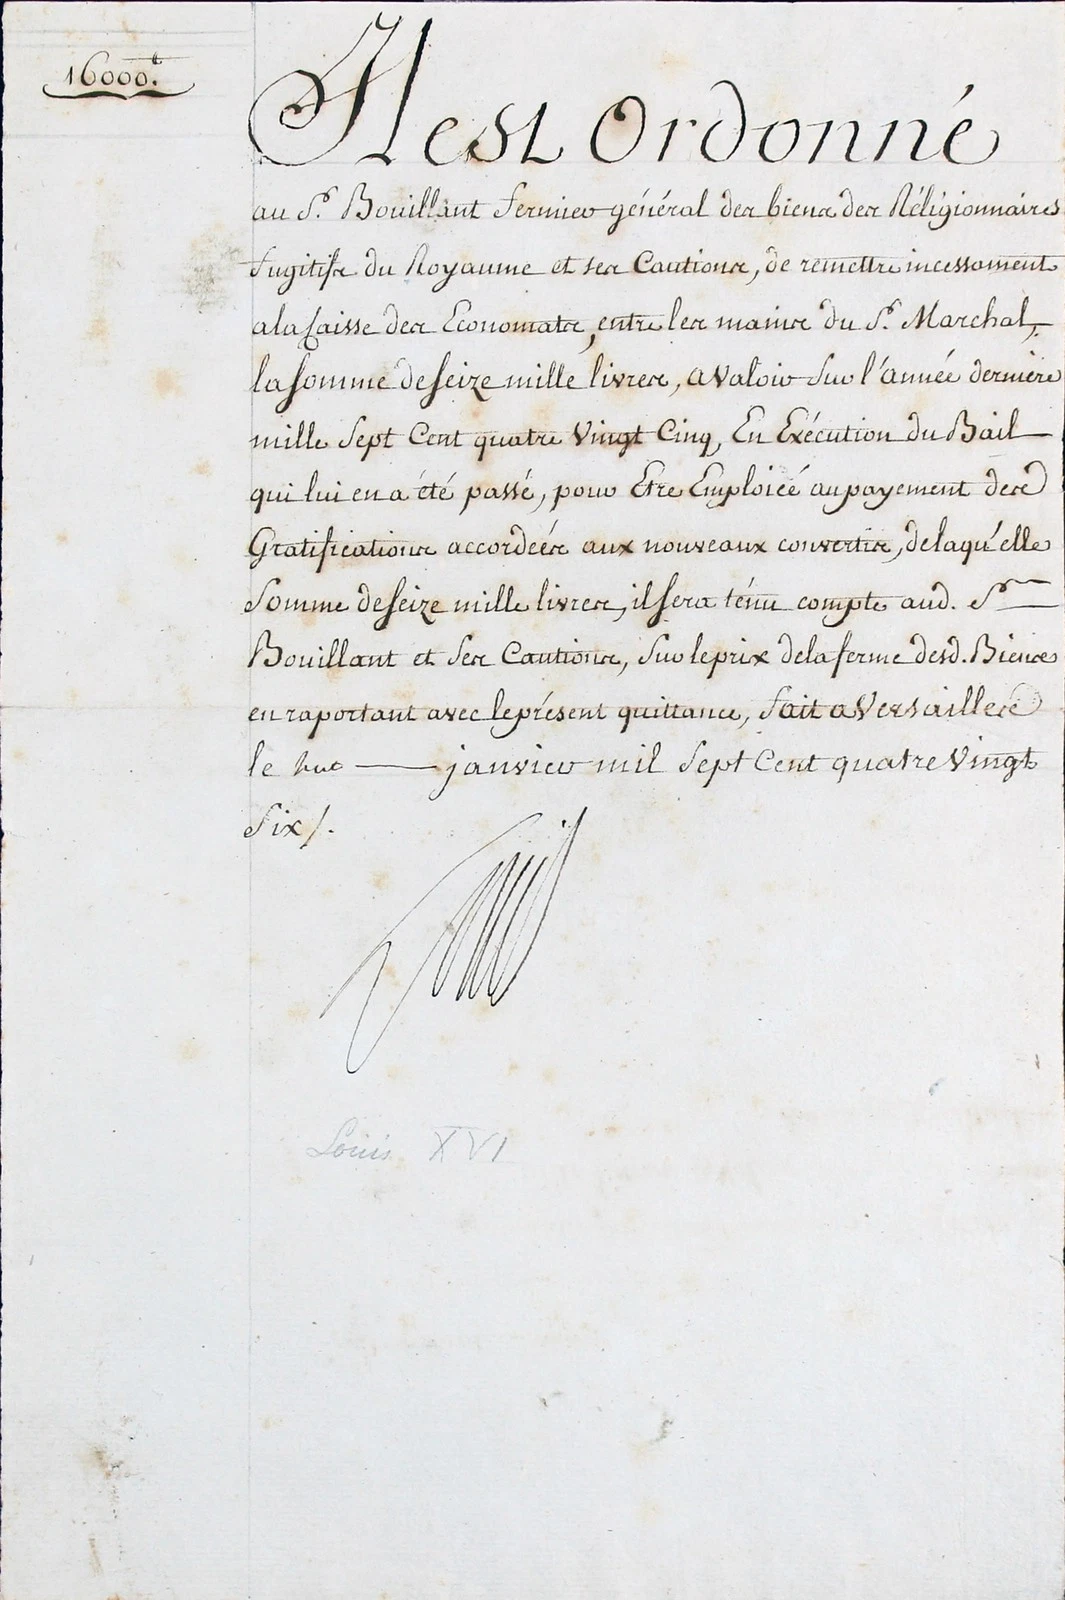 16000.ᵗ
Il est Ordonné
au Sr. Bouillant fermier général des biens des Réligionnaires
fugitifs du Royaume et ses Cautions, de remettre incessament
a la Caisse des Economats, entre les mains du Sr. Marchal,
la Somme de Seize mille livres, a valoir Sur l'année derniere
mille Sept Cent quatre Vingt Cinq, En Exécution du Bail
qui lui en a été passé, pour Etre Emploiéé au payement des
Gratifications accordéés aux nouveaux convertis, de laqu'elle
Somme de Seize mille livres, il sera ténu compte aud. Sr
Bouillant et Ses Cautions, Sur le prix de la ferme desd. Biens
en raportant avec le présent quittance, fait a Versailles
le huit janvier mil Sept Cent quatre Vingt
Six /.
Louis
Louis XVI